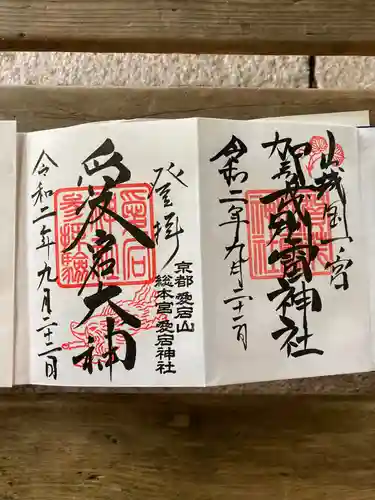 山城国一宮
加茂別雷神社
令和二年九月二十二日
登拝
京都愛宕山
総本宮愛宕神社
愛宕大神
令和二年九月二十二日